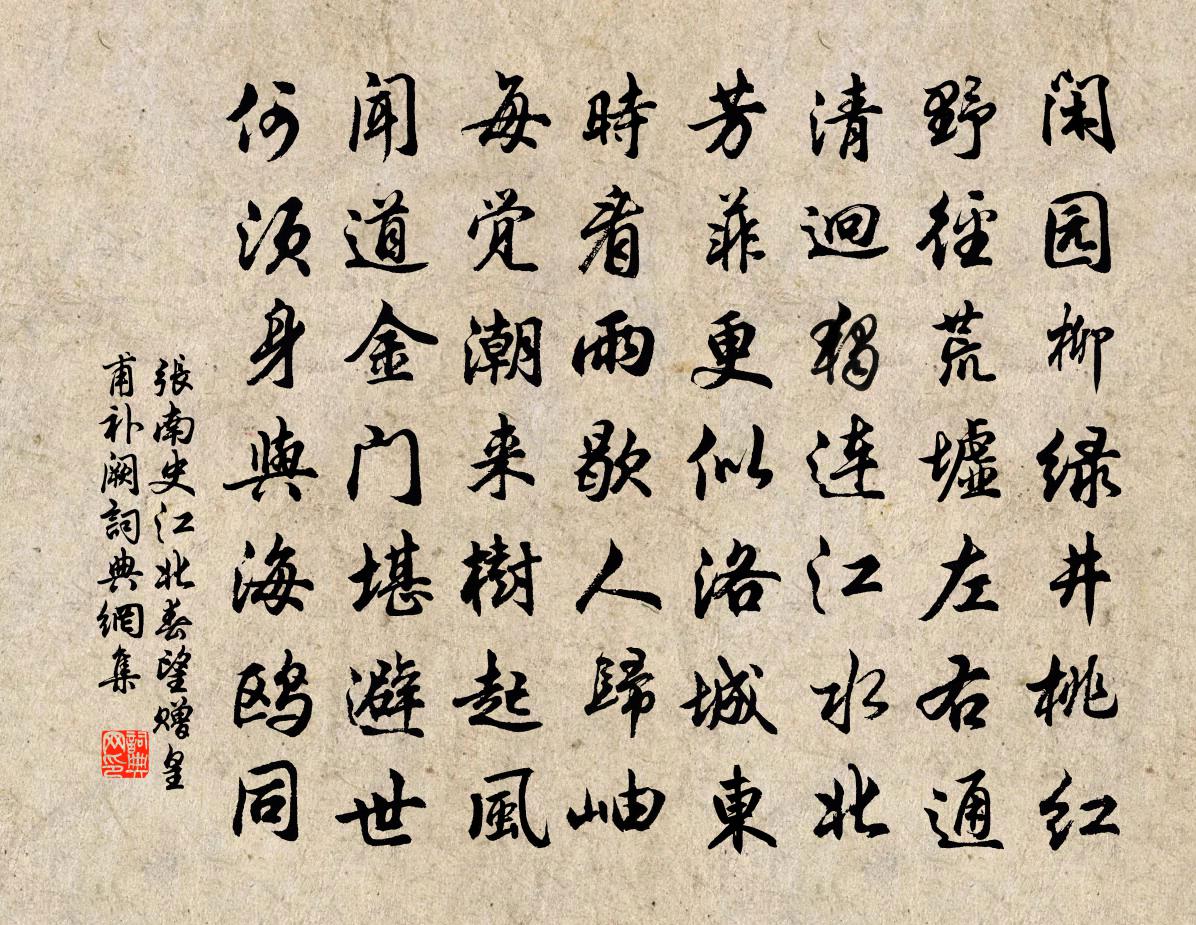 闲园柳绿井桃红
野径荒墟左右通
清迥独连江水北
芳菲更似洛城東
時看雨歇人歸岫
每觉潮来樹起風
聞道金门堪避世
何须身與海鸥同
張南史江北春望赠皇
甫补阙詞典網集
詞典
网印